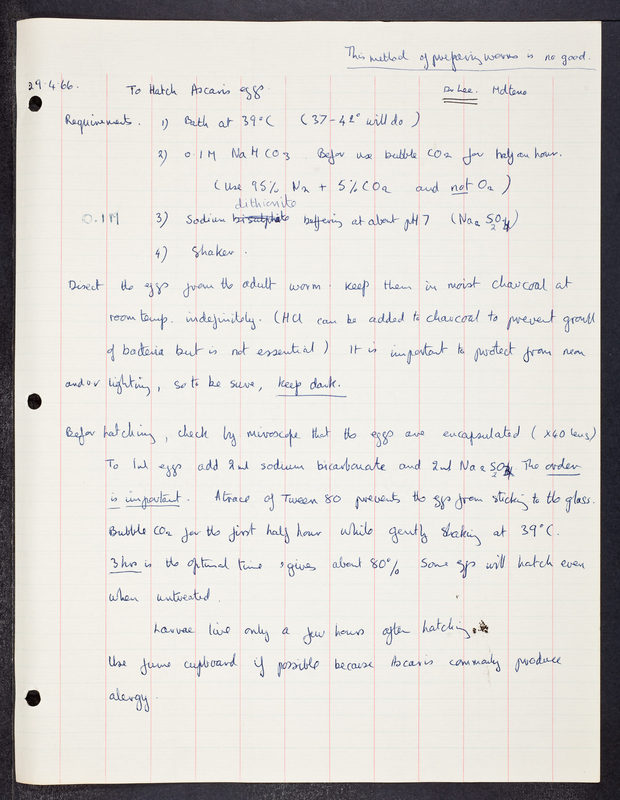 This method of preparing worms is no good.
29.4.66. To Hatch Ascaris eggs. Dr Lee. Molteno
Requirements. 1) Bath at 39°C (37-42° will do)
2) 0.1M NaHCO3. Befor use bubble CO2 for half an hour.
(Use 95% N2 + 5% CO2 and not O2)
dithionite
0.1M 3) Sodium bisulphite buffering at about pH 7 (Na2 S2O4)
4) Shaker.
Disect the eggs from the adult worm. Keep them in moist charcoal at
room temp. indefinitely. (HCl can be added to charcoal to prevent growth
of bacteria but is not essential) It is important to protect from neon
and/or lighting, so to be sure, keep dark.
Befor hatching, check by microscope that the eggs are encapsulated (x40 lens)
To 1ml eggs add 2ml sodium bicarbonate and 2ml Na2 S2O4 The order
is important. A trace of Tween 80 prevents the eggs from sticking to the glass.
Bubble CO2 for the first half hour while gently shaking at 39°C.
3 hrs is the optimal time & gives about 80% Some eggs will hatch even
when untreated.
Larvae live only a few hours after hatching.
Use fume cupboard if possible because Ascaris commonly produce
alergy.